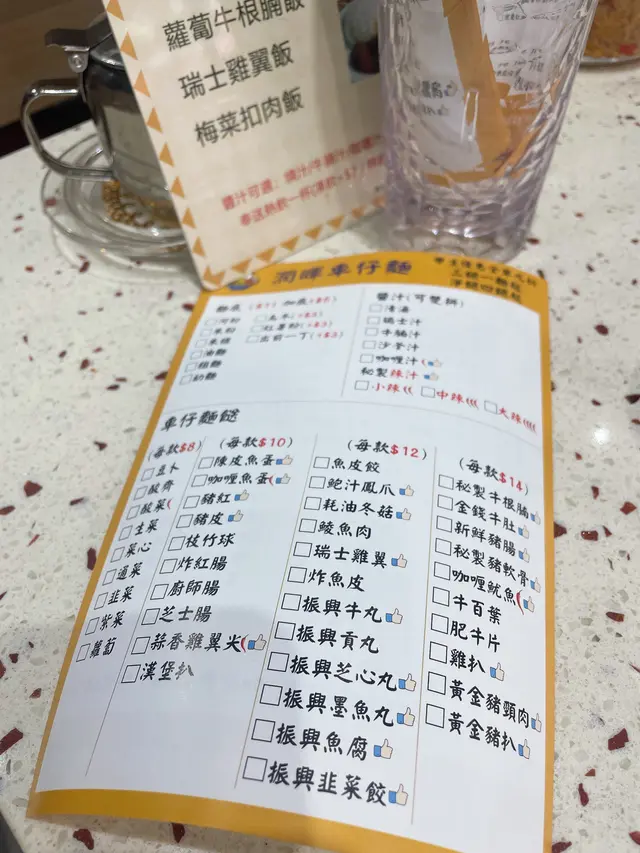 蘿蔔牛根腩飯
瑞士雞翼飯
梅菜扣肉飯
車仔麵
三餸一麵起
淨餸四餸起
醬汁(可雙拼)
清湯
瑞士汁
牛腩汁
沙爹汁
咖喱汁
秘製辣汁
小辣 中辣 大辣
河粉
米粉
油麵
粗麵
出前一丁(+$3)
車仔麵餸
(每款$8)
酸齋
酸菜
生菜
菜心
通菜
韭菜
紫菜
蘿蔔
(每款$10)
陳皮魚蛋
咖喱魚蛋
豬紅
豬皮
枝竹球
炸紅腸
廚師腸
芝士腸
蒜香雞翼尖
漢堡扒
(每款$12)
魚皮餃
鮑汁鳳爪
耗油冬菇
鯪魚肉
瑞士雞翼
炸魚皮
振興牛丸
振興貢丸
振興芝心丸
振興墨魚丸
振興魚腐
振興韭菜餃
(每款$14)
秘製牛根腩
金錢牛肚
新鮮豬腸
秘製豬軟骨
咖喱魷魚
牛百葉
肥牛片
雞扒
黃金豬頸肉
黃金豬扒